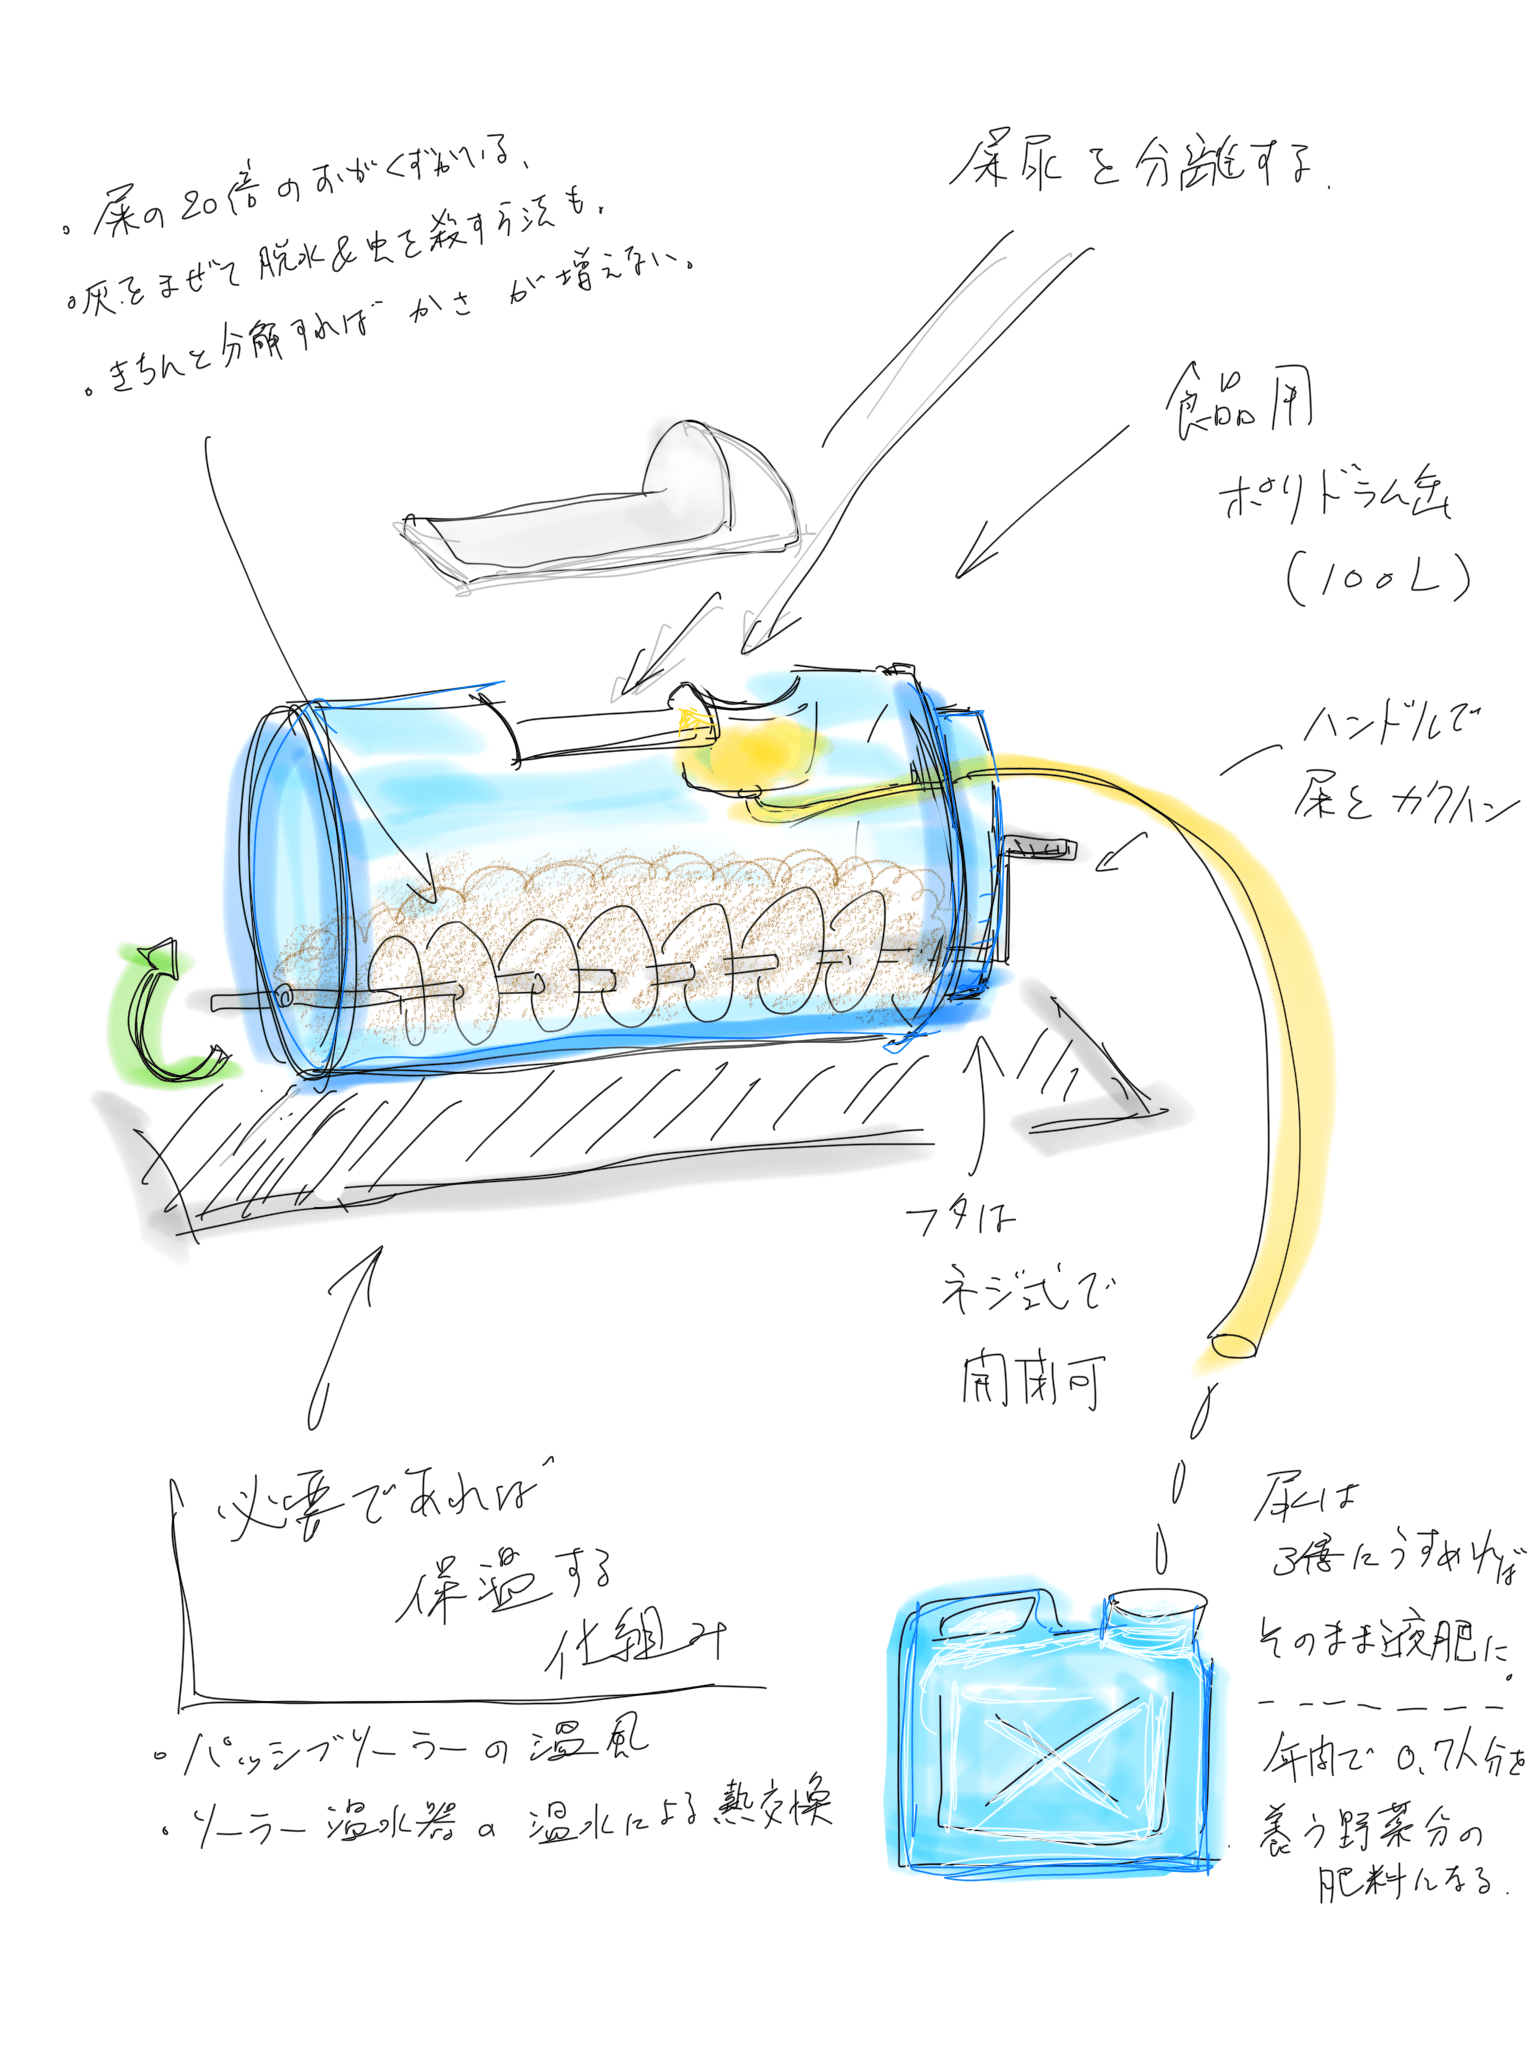 ・屎の20倍のおがくずがいる、
・灰をまぜて脱水&虫を殺す方法も。
・きちんと分解すれば かさ が増えない。
屎尿を分離する.
食品用
ポリドラム缶
(100L)
ハンドルで
屎をカクハン
フタは
ネジ式で
開閉可
必要であれば
保温する
仕組み
・パッシブソーラーの温風
・ソーラー温水器の温水による熱交換
尿は
3倍にうすめれば
そのまま液肥に。
年間で0.7人分を
養う野菜分の
肥料になる.